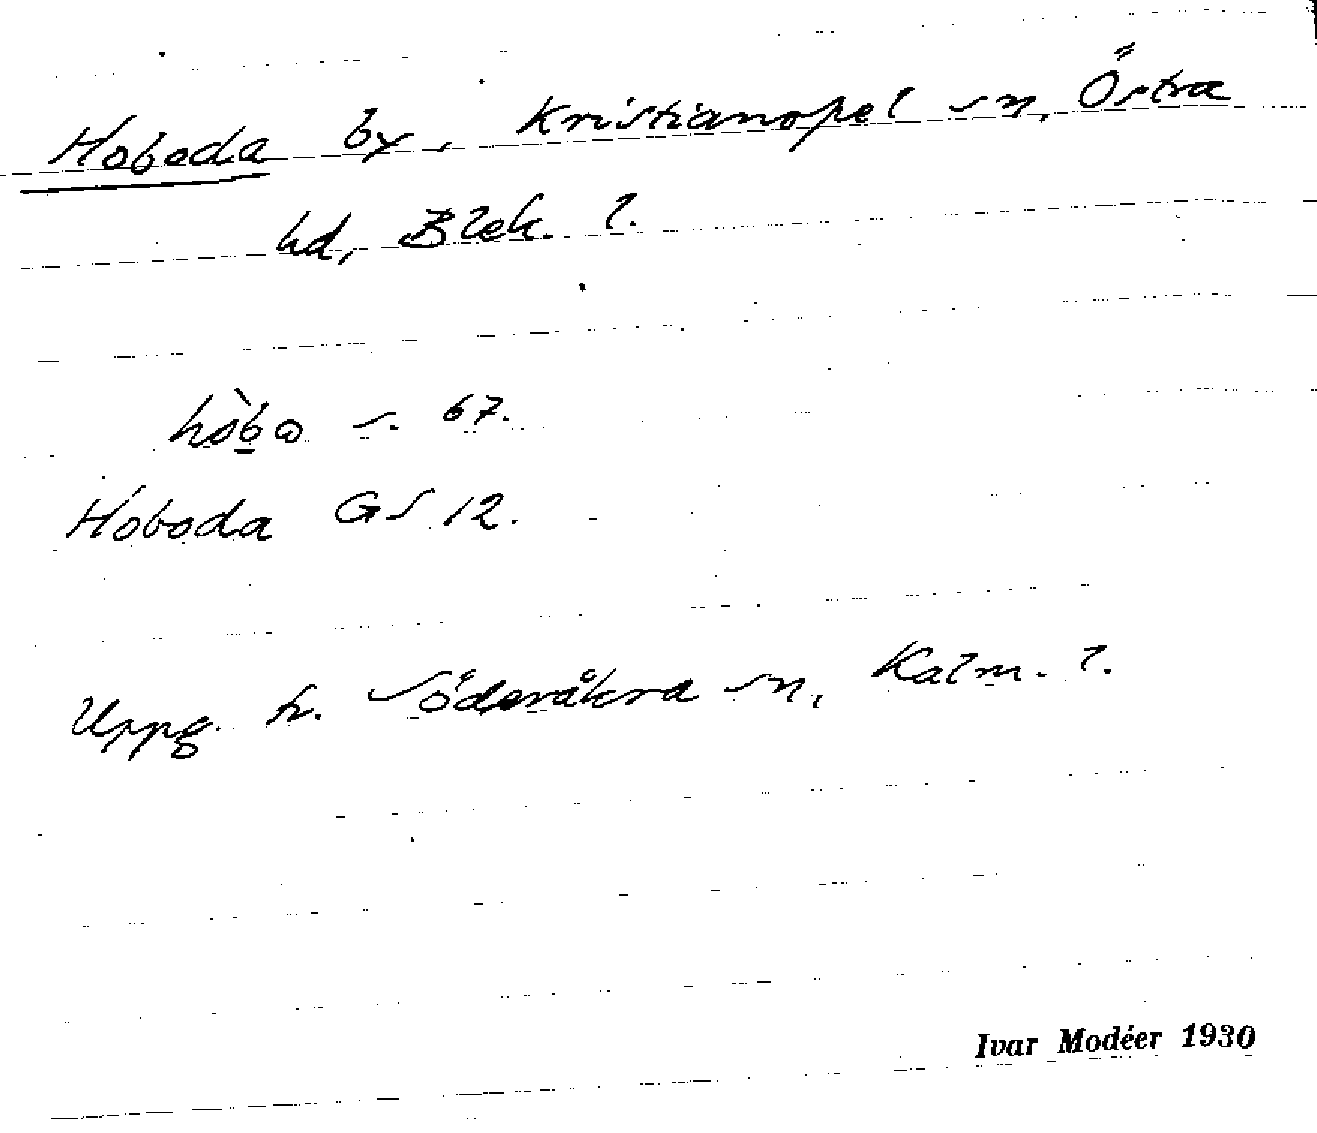 Hoboda by, Kristianopel sn, Östra
hd, Blek. l.
s. 67.
Hoboda GS 12.
Uppg. fr. Söderåkra sn, Kalm. l.
Ivar Modéer 1930